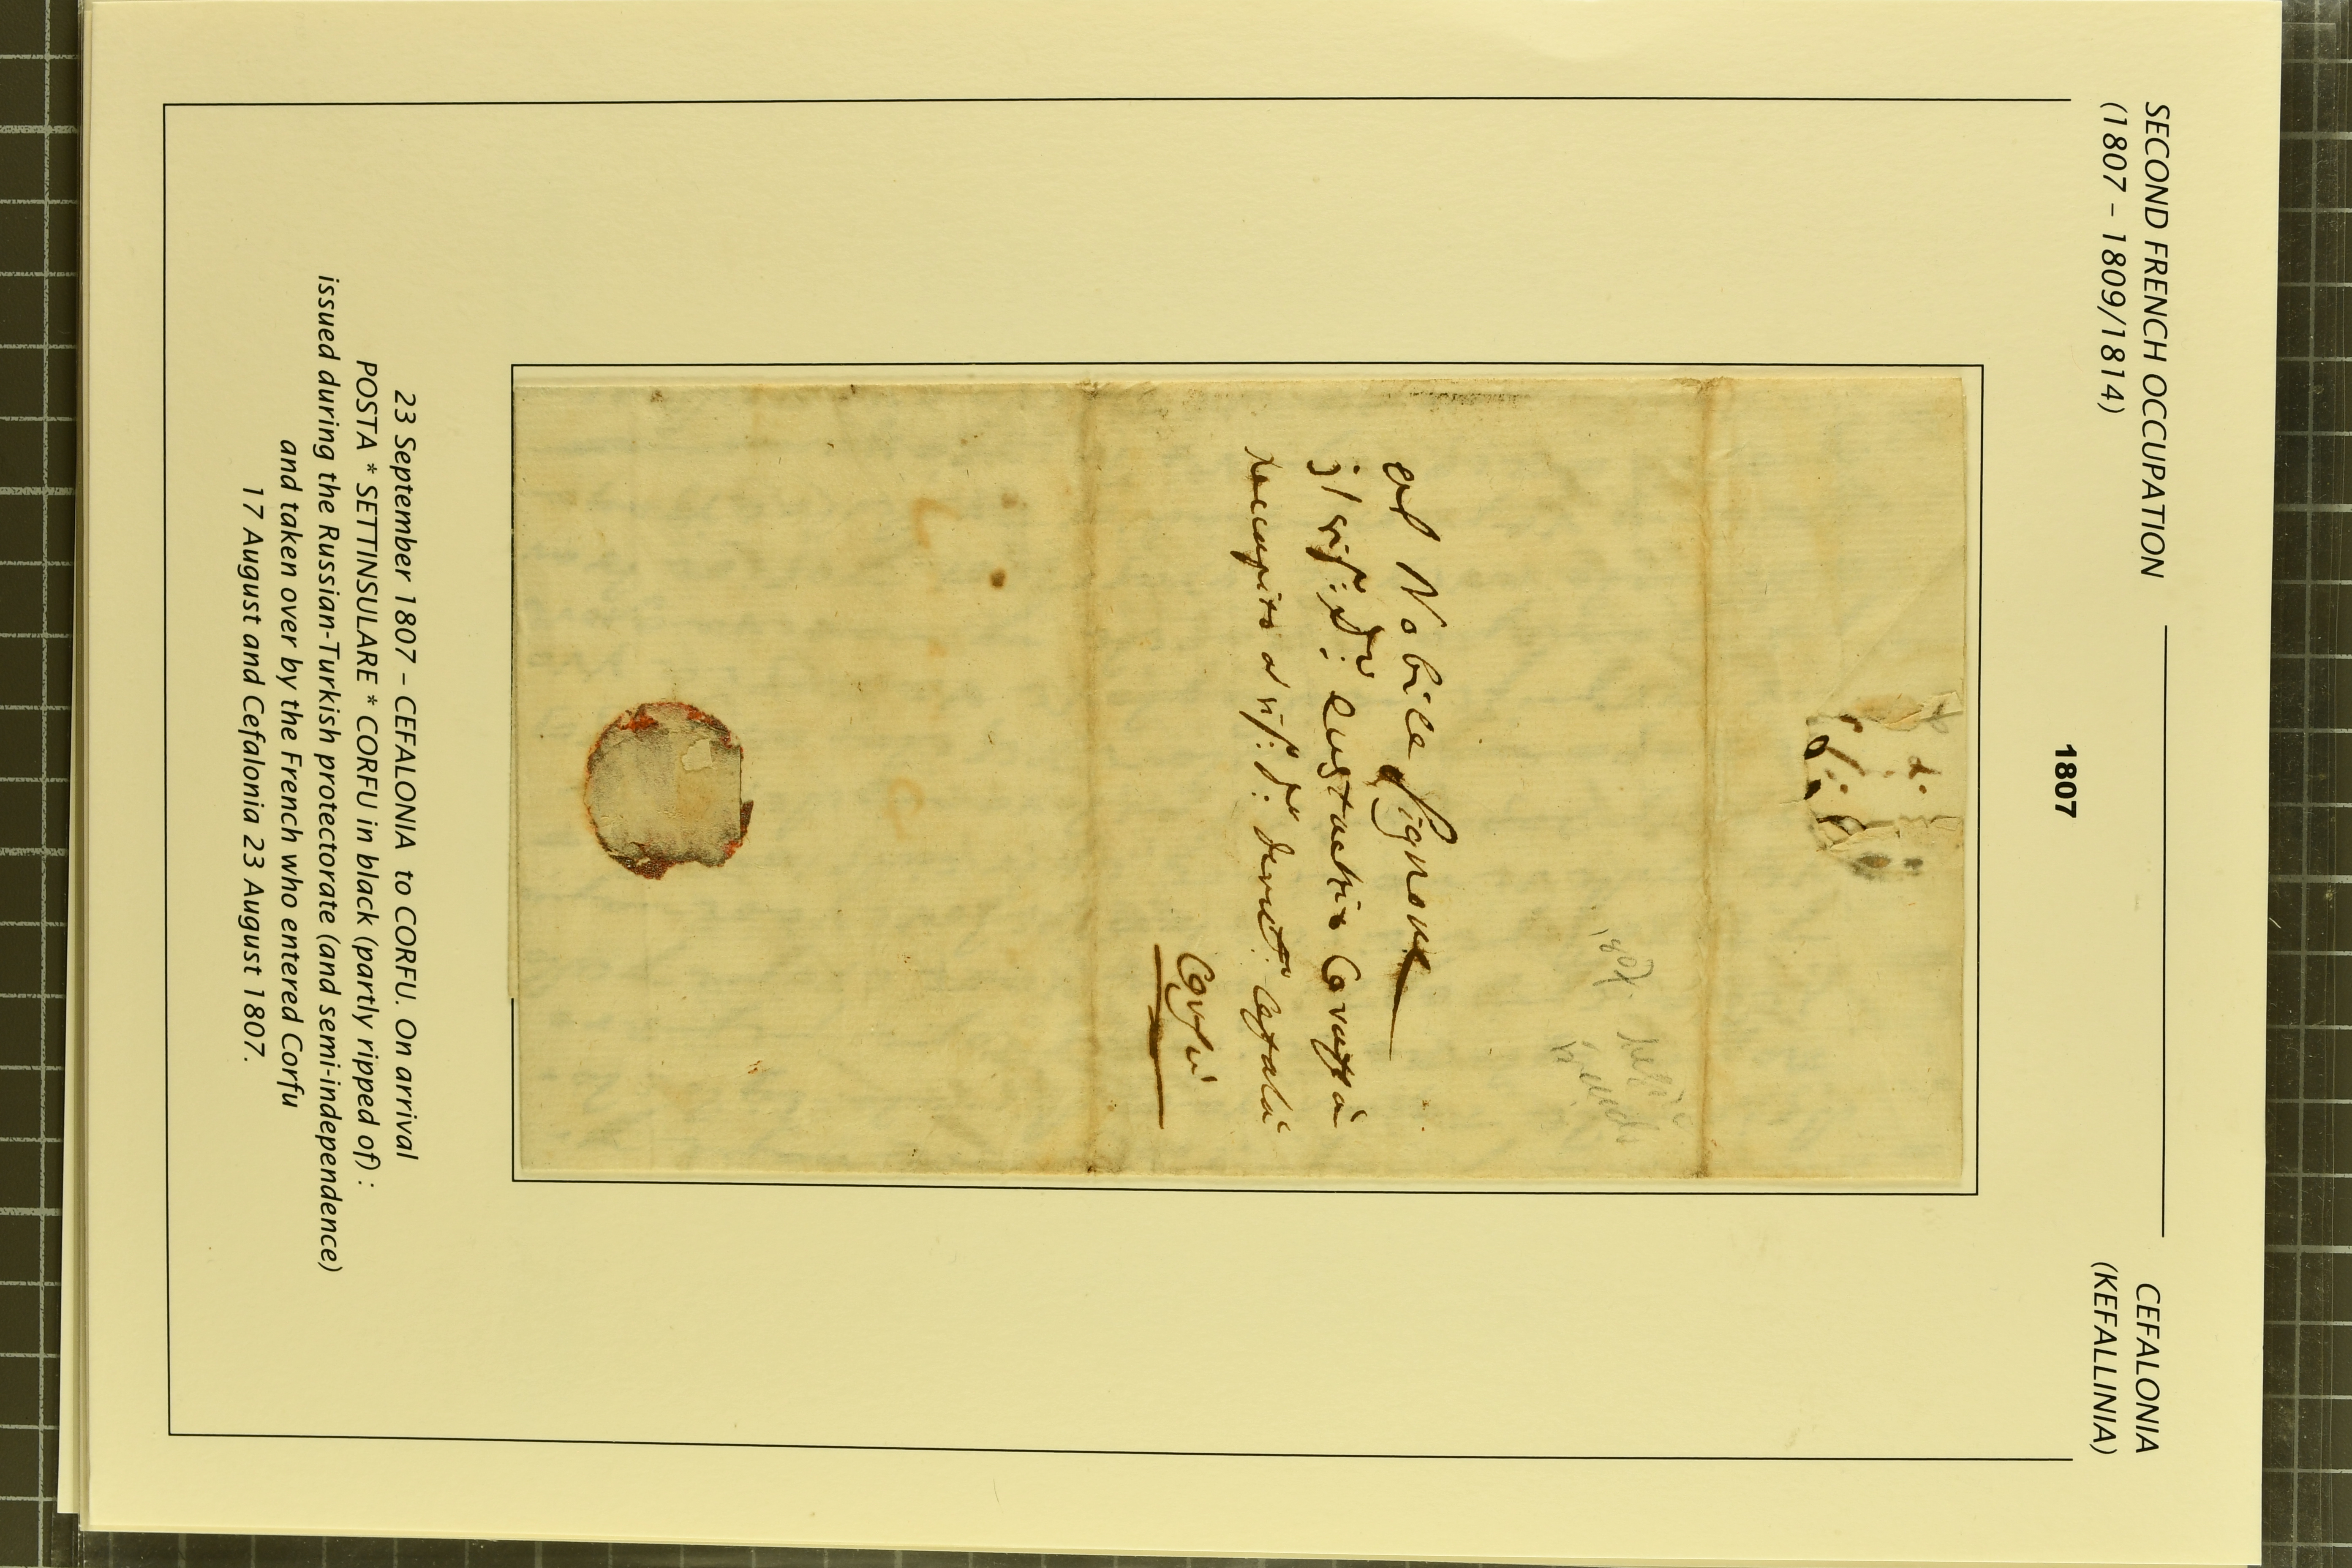 SECOND FRENCH OCCUPATION
(1807 – 1809/1814)
CEFALONIA
(KEFALLINIA)
1807
al Nobile Signore
Eustachio
Recapito al
Corfù
23 September 1807 – CEFALONIA to CORFU. On arrival
POSTA * SETTINSULARE * CORFU in black (partly ripped of) :
issued during the Russian-Turkish protectorate (and semi-independence)
and taken over by the French who entered Corfu
17 August and Cefalonia 23 August 1807.